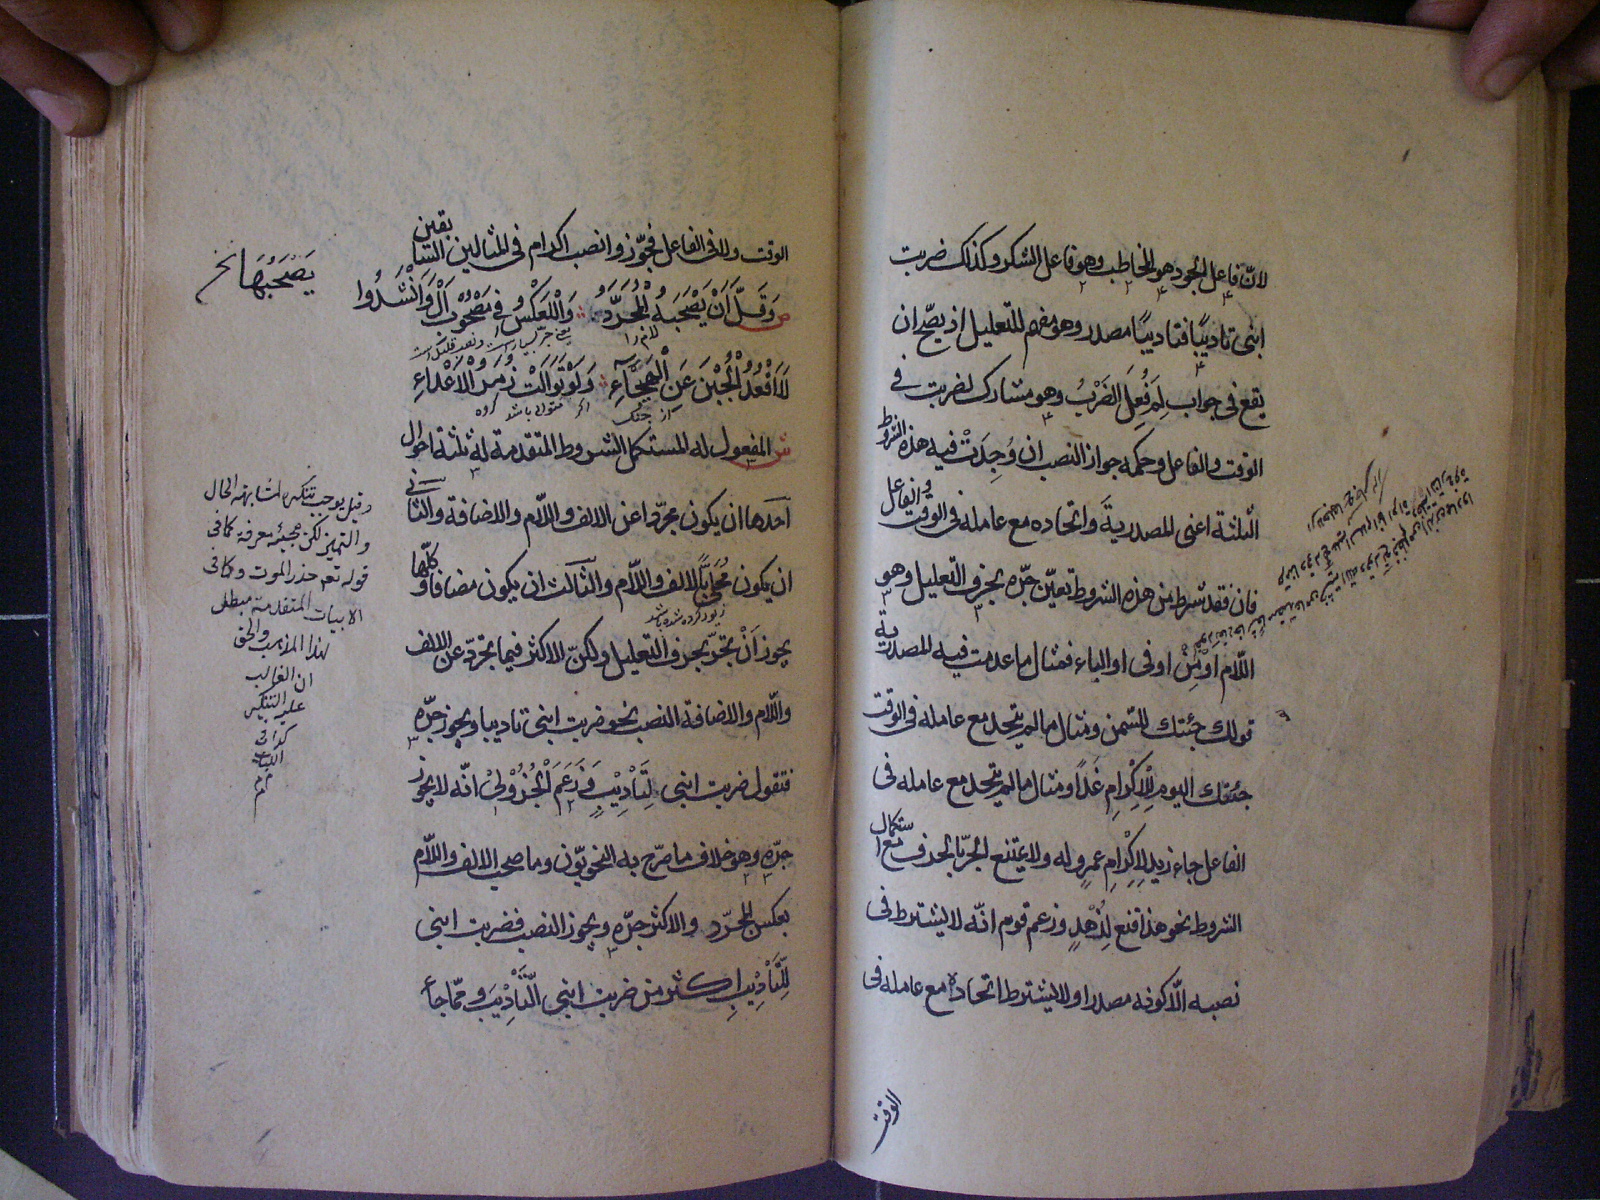 لانّ فاعل الجود هو المخاطب وهو فاعل الشكر وكذلك ضربت
ابنى تاديبًا فتاديبًا مصدر وهو مفهم للتعليل اذ يصّح ان
يقع فى جواب لِمَ فُعِلَ الضَرْبُ وهو مشارك لضربت فى
الوقت والفاعل وحكمه جواز النصب ان وُجِدَتْ فيه هذه الشروط
الثلثة اعنى المصدرية واتحاده مع عامله فى الوقت والفاعل
فان فقد شرط من هذه الشروط تعيّن جرّه بحرف التعليل وهو
اللّام او مِنْ او فى او الباء فمثال ما عدمت فيه المصدرية
قولك جئتك للسّمن ومثال ما لم يتحد مع عامله فى الوقت
جئتك اليوم لِلْاِكْرامِ غَدًا ومثال ما لم يتحد مع عامله فى
الفاعل جاء زيد لِاِكْرامِ عمرٍو له ولا يمتنع الجرّ بالحرف مع استكمال
الشروط نحو هذا قنع لِزُهْدٍ وزعم قوم انّه لا يشترط فى
نصبه الّا كونه مصدرا ولا يشترط اتحاده مع عامله فى
الوقت
الوقت ولا فى الفاعل فجوّزوا نصب اكرام فى المثالين السّابقين
ص وَقَلَّ اَنْ يَصْحَبَهُ الْمُجَرَّدُ وَالْعَكْسُ فى مَصْحُوْبِ اَلْ وَاَنْشَدُوا
يَصْحَبُهَا
لَا اَقْعُدُ الْجُبْنَ عَنِ الْهَيْجَآءِ وَلَوْ تَوَالَتْ زُمَرُ الْاَعْدَاءِ
از جنك اكر متوالى باشد كروه
ش المفعول له المستكمل الشروط المتقدمة له ثلثة احوال
احدها ان يكون مجرّدا عن الالف واللّام والاضافة والثّانى
ان يكون مُحَلًّى بالالف واللّام والثّالث ان يكون مضافا وكلّها
يجوز اَنْ تجرّ بحرف التعليل ولكنّ الاكثر فيما تجرّد عن الالف
واللّام والاضافة النصب نحو ضربت ابنى تاديبا ويجوز جرّه
فتقول ضربت ابنى لِتَأْدِيْبٍ وَزَعَمَ الْجُزُوْلىْ انّه لا يجوز
جرّه وهو خلاف ما صرّح به النحويّون وما صحب الالف واللّام
بعكس المجرّد والاكثر جرّه ويجوز النصب فضربت ابنى
لِلتَّأْدِيْبِ اكثر من ضربت ابنى التَّأْدِيْبَ وممّا جاء
وقيل يوجب تنكيره لمشابهته الحال
والتميز لكن مجيئه معرفة كما فى
قوله تعم حذر الموت وكما فى
الابيات المتقدمة مبطل
لهذا المذهب والحق
ان الغالب
عليه التنكير